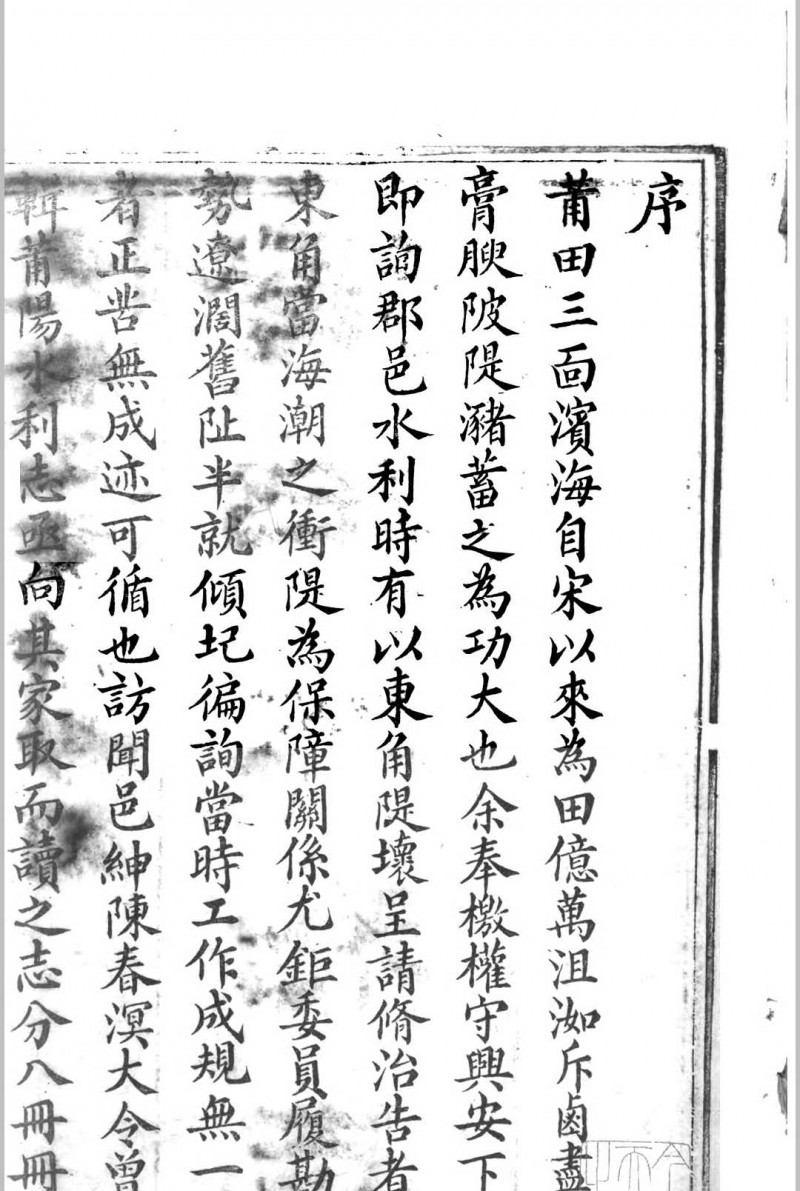 序
莆田三面濱海自宋以來為田億萬沮洳斥鹵盡
膏腴陂隄瀦蓄之為功大也余奉檄權守興安下
即詢郡邑水利時有以東角隄壞呈請脩治告者
東角當海潮之衝隄為保障關係尤鉅委員履勘
勢遼濶舊阯半就傾圮徧詢當時工作成規無一
者正苦無成迹可循也訪聞邑紳陳春溟大令曾
輯莆陽水利志亟向其家取而讀之志分八冊冊